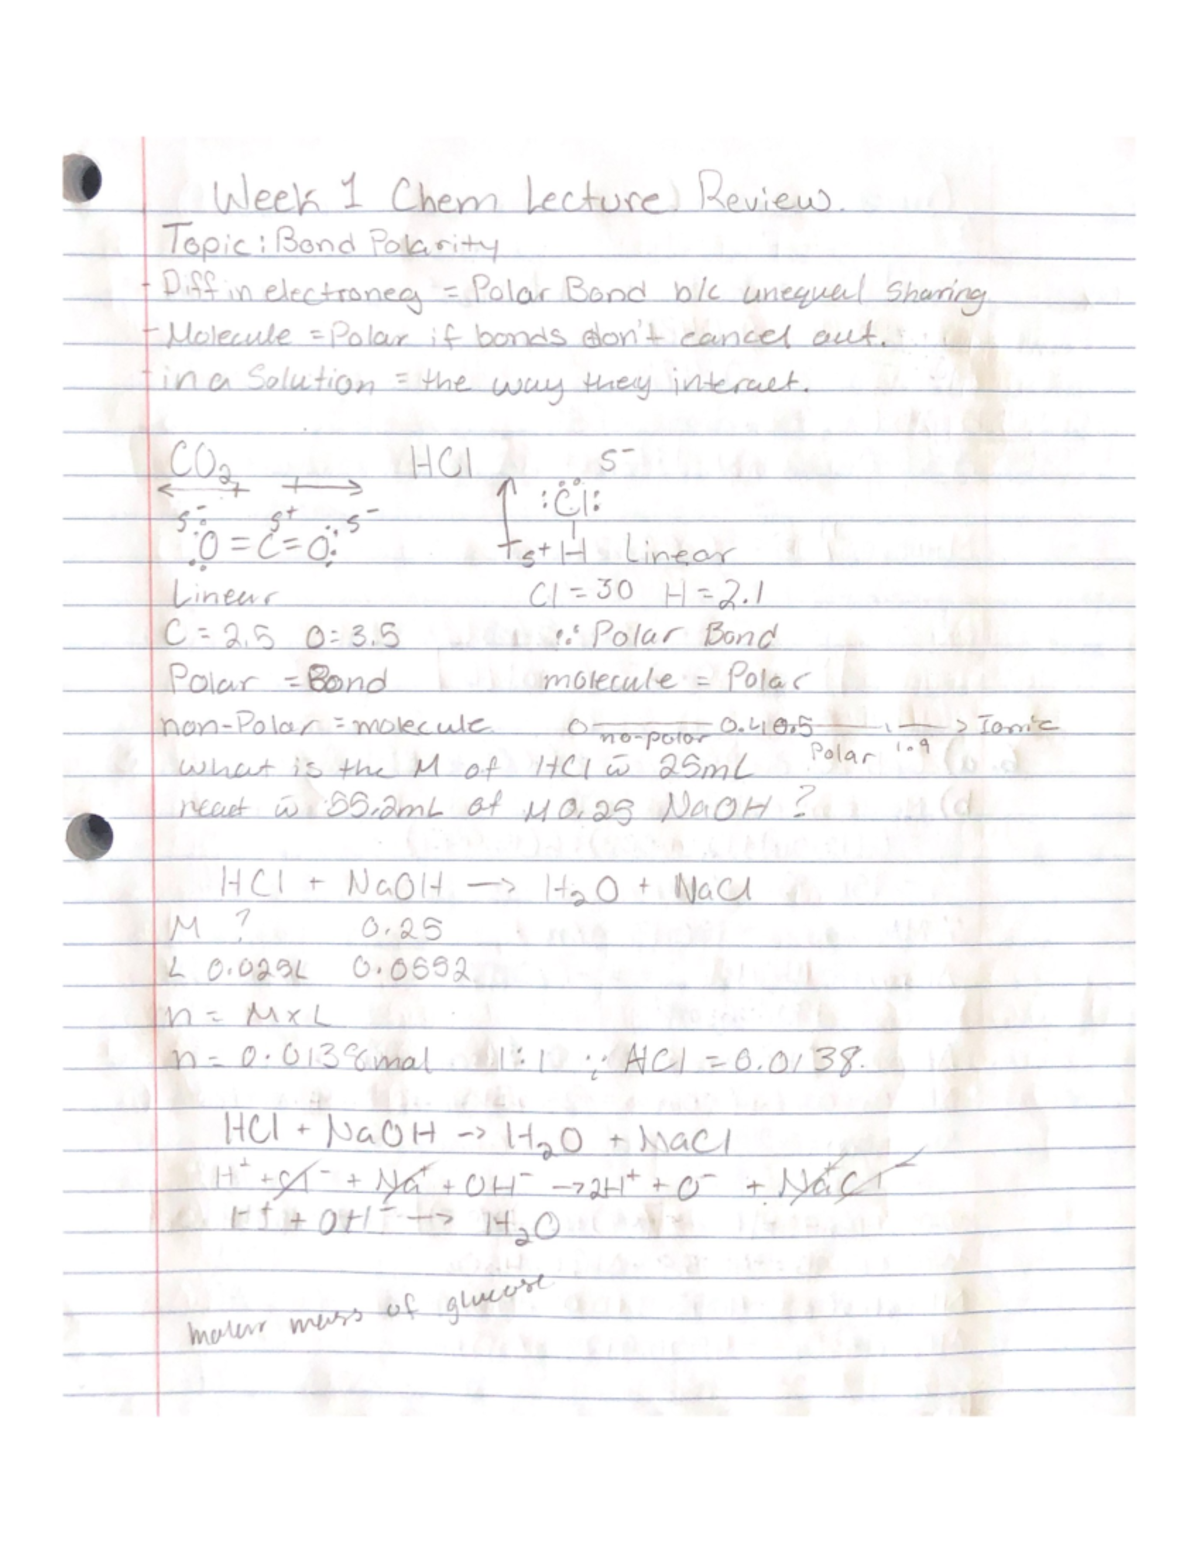 Week 1 Chem Lecture Review.
Topic: Bond Polarity
- Diff in electroneg = Polar Bond b/c unequal sharing
- Molecule = Polar if bonds don't cancel out.
- in a Solution = the way they interact.
CO₂ HCl S⁻
:Cl:
S⁻ S⁺ S⁻
O=C=O S+ H Linear
Linear Cl = 30 H = 2.1
C = 2.5 O = 3.5 ∵ Polar Bond
Polar = Bond molecule = Polar
non-Polar = molecule 0 no-polar 0.4 0.5 Polar 1.9 > Ionic
what is the M of HCl w̄ 25mL
react w̄ 55.2mL of M 0.25 NaOH?
HCl + NaOH → H₂O + NaCl
M ? 0.25
L 0.025L 0.0552
n = M×L
n = 0.0138mol 1:1 ∵ HCl = 0.0138.
HCl + NaOH → H₂O + NaCl
H⁺ + Cl⁻ + Na⁺ + OH⁻ → 2H⁺ + O⁻ + Na⁺Cl⁻
H⁺ + OH⁻ → H₂O
molar mass of glucose